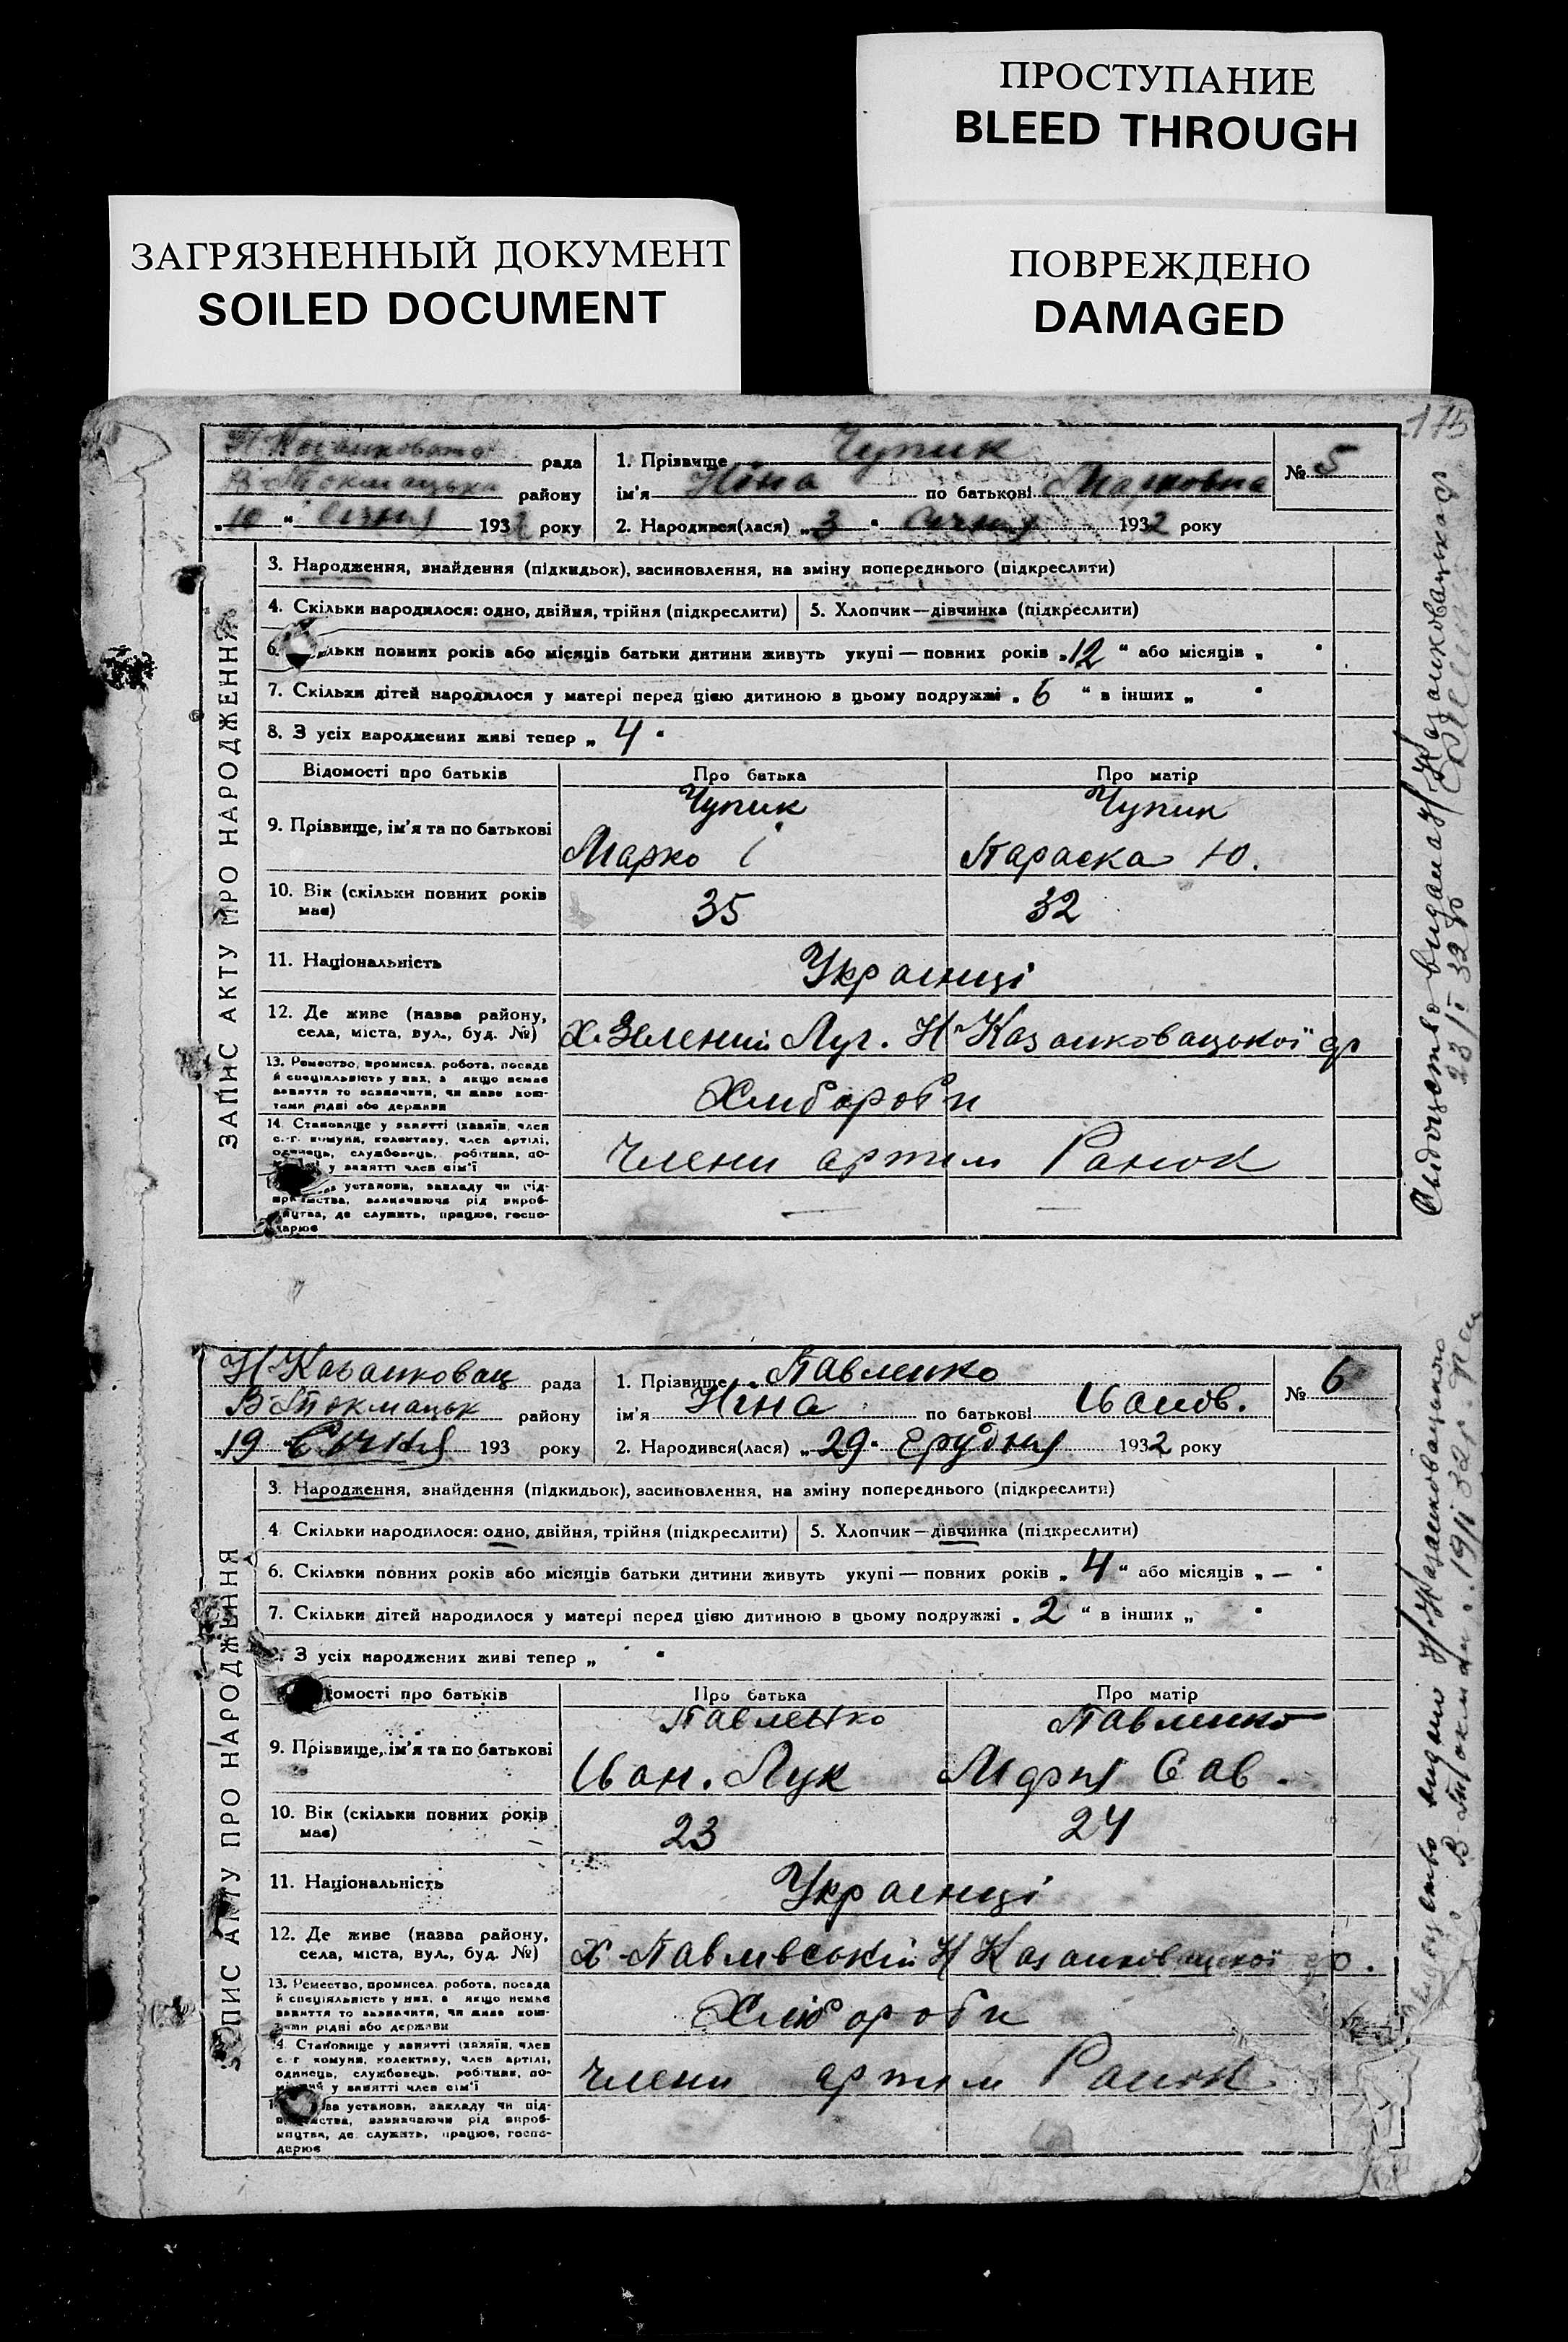 ПРОСТУПАНИЕ
BLEED THROUGH
ЗАГРЯЗНЕННЫЙ ДОКУМЕНТ
SOILED DOCUMENT
ПОВРЕЖДЕНО
DAMAGED
175
ЗАПИС АКТУ ПРО НАРОДЖЕННЯ
рада
В-Токмацька району
„10“ Січня 1932 року
1. Прізвище Чупик
ім'я Ніна по батькові Марковна
2. Народився(лася) „3“ Січня 1932 року
№ 5
3. Народження, знайдення (підкидьок), засиновлення, на зміну попереднього (підкреслити)
4. Скільки народилося: одно, двійня, трійня (підкреслити) 5. Хлопчик—дівчинка (підкреслити)
6. Скільки повних років або місяців батьки дитини живуть укупі — повних років „12“ або місяців „ “
7. Скільки дітей народилося у матері перед цією дитиною в цьому подружжі „6“ в інших „ “
8. З усіх народжених живі тепер „4“
Відомості про батьків Про батька Про матір
9. Прізвище, ім'я та по батькові
Чупик Чупик
Марко І Параска Ю.
10. Вік (скільки повних років має) 35 32
11. Національність Украенці
12. Де живе (назва району, села, міста, вул., буд. №) Х. Зелений Луг. Н-Казанковацької др
13. Ремество, промисел, робота, посада
й спеціяльність у них, а якщо немає
заняття то зазначити, чи живе кош-
тами рідні або держави
Хлібороби
14. Становище у занятті (хазяїн, член
с.-г. комуни, колективу, член артілі,
одинець, службовець, робітник, по-
у занятті член сім'ї
Члени артіли Ранок
установи, закладу чи під-
приємства, визначаючи рід вироб-
ництва, де служить, працює, госпо-
дарює
Свідоцтво видана Н-Казанковацька др
23/І 32 р
ЗАПИС АКТУ ПРО НАРОДЖЕННЯ
Н-Казанковац рада
В-Токмацьк району
„19 Січня 193 року
1. Прізвище Павленко
ім'я Ніна по батькові Іванов.
2. Народився(лася) „29“ Грудня 1932 року
№ 6
3. Народження, знайдення (підкидьок), засиновлення, на зміну попереднього (підкреслити)
4. Скільки народилося: одно, двійня, трійня (підкреслити) 5. Хлопчик—дівчинка (підкреслити)
6. Скільки повних років або місяців батьки дитини живуть укупі — повних років „4“ або місяців „—“
7. Скільки дітей народилося у матері перед цією дитиною в цьому подружжі „2“ в інших „ “
8. З усіх народжених живі тепер „ “
Відомості про батьків Про батька Про матір
9. Прізвище, ім'я та по батькові
Павленко Павленко
Іван. Лук Марія Сав.
10. Вік (скільки повних років має) 23 24
11. Національність Украенці
12. Де живе (назва району, села, міста, вул., буд. №) Х-Павлівський Н Казанковацької др.
13. Ремество, промисел, робота, посада
й спеціяльність у них, а якщо немає
заняття то зазначити, чи живе кош-
тами рідні або держави
Хлібороби
14. Становище у занятті (хазяїн, член
с.-г. комуни, колективу, член артілі,
одинець, службовець, робітник, по-
у занятті член сім'ї
Члени артіли Ранок
установи, закладу чи під-
приємства, визначаючи рід вироб-
ництва, де служить, працює, госпо-
дарює
Свідоцтво видано Н-Казанковацького
19/І 32 р.